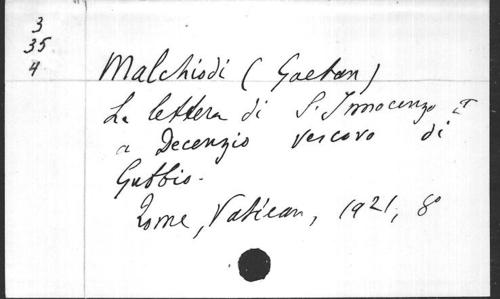 3
35
4
Malchiodi (Gaetan)
La lettera di S. Innocenzo I
a Decenzio vescovo di
Gubbio.
Rome, Vatican, 1921, 8º